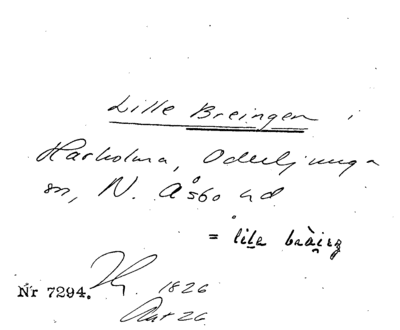 Lille Breingen i
Harholma, Oderljunga
sn, N. Åsbo hd
= lilə
Nr 7294. 1826
26